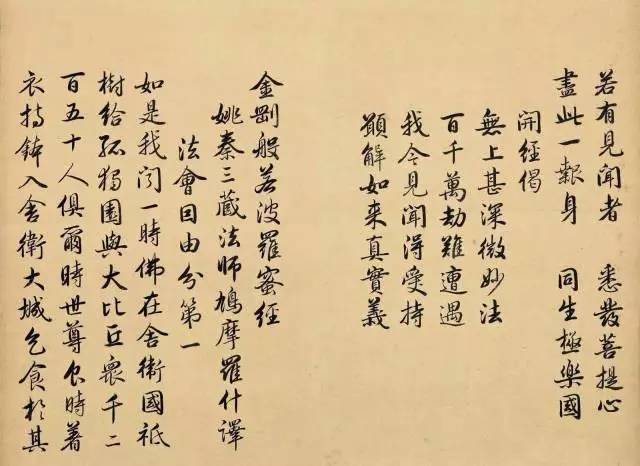 若有見聞者　悉發菩提心
盡此一報身　同生極樂國
開經偈
無上甚深微妙法
百千萬劫難遭遇
我今見聞得受持
願解如来真實義
金剛般若波羅蜜經
姚秦三藏法師鳩摩羅什譯
法會因由分第一
如是我闻一時佛在舍衛國祇
樹給孤獨園與大比丘衆千二
百五十人俱爾時世尊食時著
衣持鉢入舍衛大城乞食於其